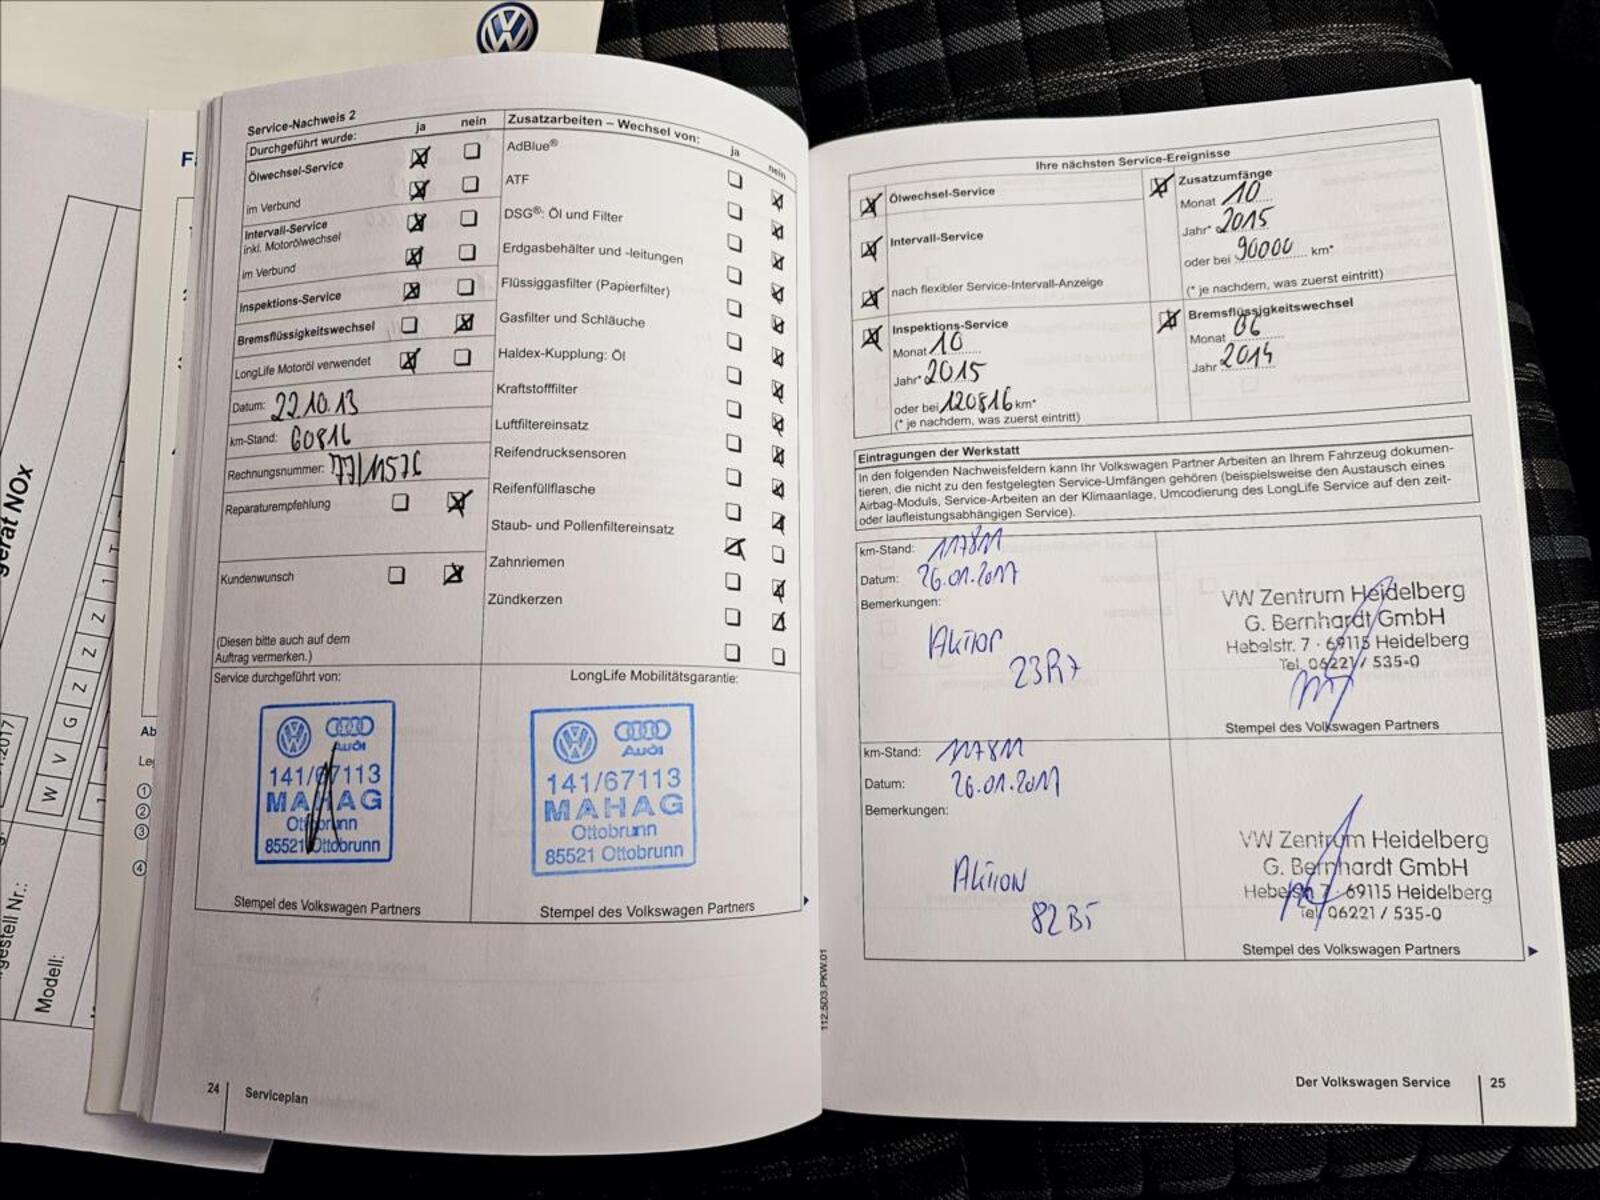 Service-Nachweis 2
Durchgeführt wurde: ja nein
Ölwechsel-Service
im Verbund
Intervall-Service
inkl. Motorölwechsel
im Verbund
Inspektions-Service
Bremsflüssigkeitswechsel
LongLife Motoröl verwendet
Datum: 22.10.13
km-Stand: 60816
Rechnungsnummer: 77/11576
Reparaturempfehlung
Kundenwunsch
(Diesen bitte auch auf dem
Auftrag vermerken.)
Zusatzarbeiten – Wechsel von: ja nein
AdBlue®
ATF
DSG®: Öl und Filter
Erdgasbehälter und -leitungen
Flüssiggasfilter (Papierfilter)
Gasfilter und Schläuche
Haldex-Kupplung: Öl
Kraftstofffilter
Luftfiltereinsatz
Reifendrucksensoren
Reifenfüllflasche
Staub- und Pollenfiltereinsatz
Zahnriemen
Zündkerzen
Service durchgeführt von:
Audi
141/67113
MAHAG
Ottobrunn
85521 Ottobrunn
Stempel des Volkswagen Partners
LongLife Mobilitätsgarantie:
Audi
141/67113
MAHAG
Ottobrunn
85521 Ottobrunn
Stempel des Volkswagen Partners
24 Serviceplan
Ihre nächsten Service-Ereignisse
Ölwechsel-Service
Intervall-Service
nach flexibler Service-Intervall-Anzeige
Inspektions-Service
Monat 10
Jahr* 2015
oder bei 120816 km*
(* je nachdem, was zuerst eintritt)
Zusatzumfänge
Monat 10
Jahr* 2015
oder bei 90000 km*
(* je nachdem, was zuerst eintritt)
Bremsflüssigkeitswechsel
Monat 06
Jahr 2014
Eintragungen der Werkstatt
In den folgenden Nachweisfeldern kann Ihr Volkswagen Partner Arbeiten an Ihrem Fahrzeug dokumen-
tieren, die nicht zu den festgelegten Service-Umfängen gehören (beispielsweise den Austausch eines
Airbag-Moduls, Service-Arbeiten an der Klimaanlage, Umcodierung des LongLife Service auf den zeit-
oder laufleistungsabhängigen Service).
km-Stand: 117811
Datum: 26.01.2017
Bemerkungen:
Aktion
23R7
VW Zentrum Heidelberg
G. Bernhardt GmbH
Hebelstr. 7 · 69115 Heidelberg
Tel. 06221 / 535-0
Stempel des Volkswagen Partners
km-Stand: 117811
Datum: 26.01.2017
Bemerkungen:
Aktion
82B5
VW Zentrum Heidelberg
G. Bernhardt GmbH
Hebelstr. 7 · 69115 Heidelberg
Tel. 06221 / 535-0
Stempel des Volkswagen Partners
112.5D3.PKW.01
Der Volkswagen Service 25
gerät NOx
Modell:
W V G Z Z Z 1 T
Ab
①
②
③
④